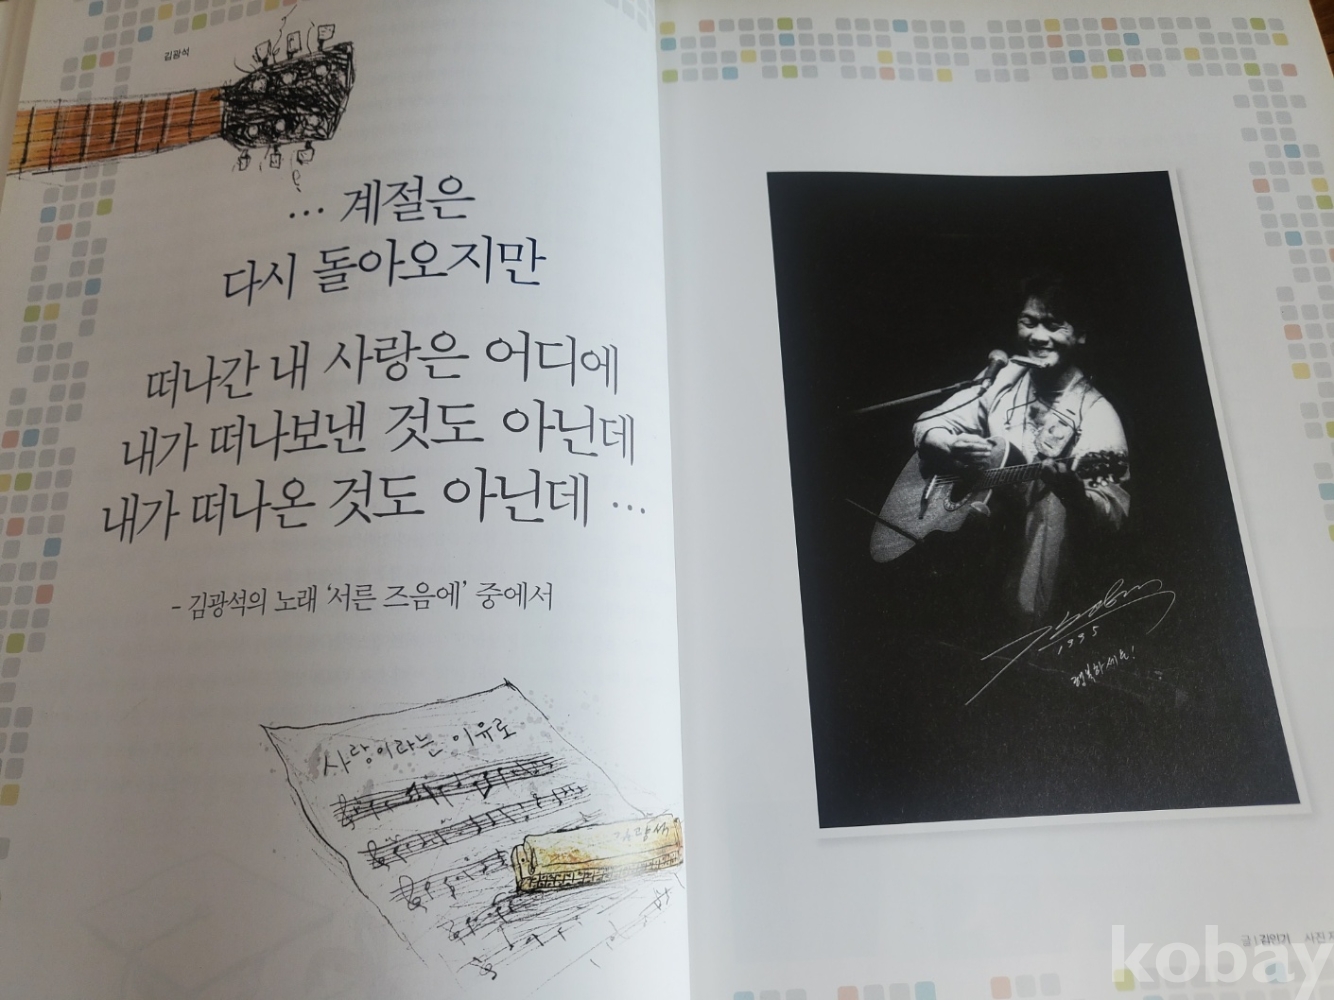 김광석
... 계절은
다시 돌아오지만
떠나간 내 사랑은 어디에
내가 떠나보낸 것도 아닌데
내가 떠나온 것도 아닌데 ...
- 김광석의 노래 '서른 즈음에' 중에서
사랑이라는 이유로
김광석
1995
행복하세요!
글 | 김인기 사진 
kobay